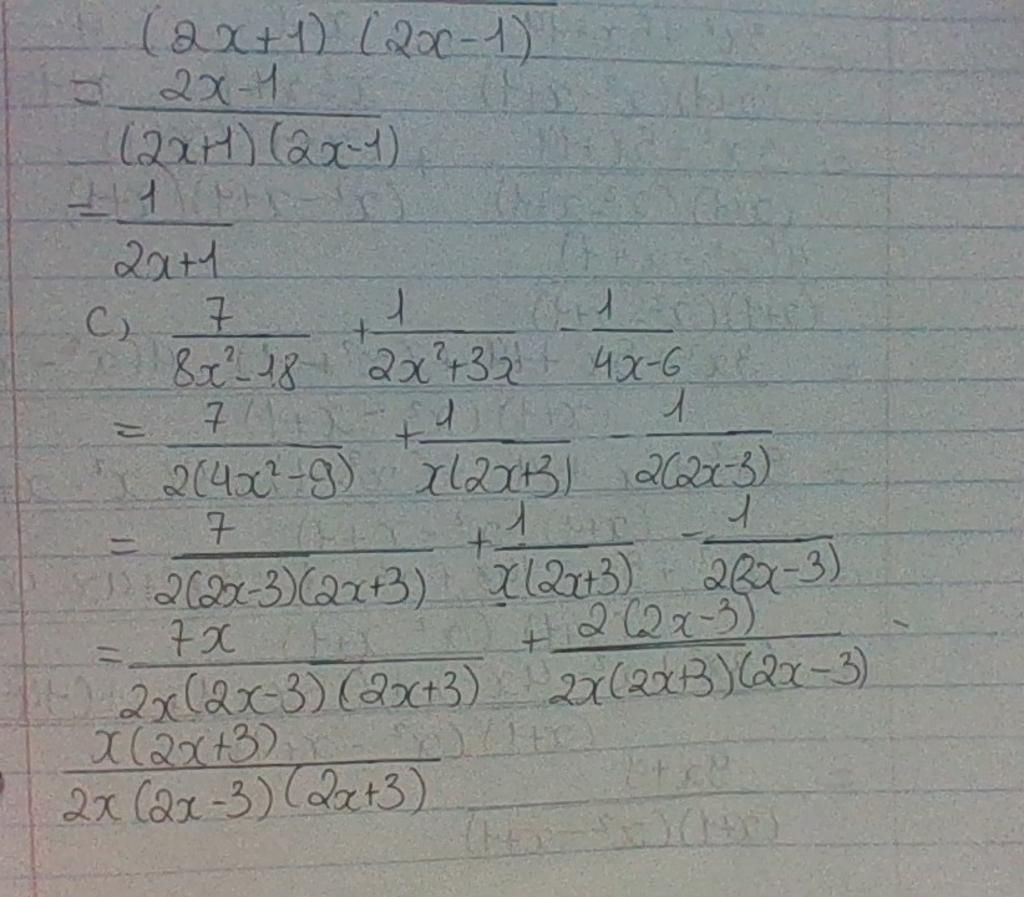 (2x+1) (2x-1)
= 2x-1 / (2x+1)(2x-1)
= 1 / 2x+1
C) 7 / 8x²-18 + 1 / 2x²+3x - 1 / 4x-6
= 7 / 2(4x²-9) + 1 / x(2x+3) - 1 / 2(2x-3)
= 7 / 2(2x-3)(2x+3) + 1 / x(2x+3) - 1 / 2(2x-3)
= 7x / 2x(2x-3)(2x+3) + 2(2x-3) / 2x(2x+3)(2x-3) -
x(2x+3) / 2x(2x-3)(2x+3)